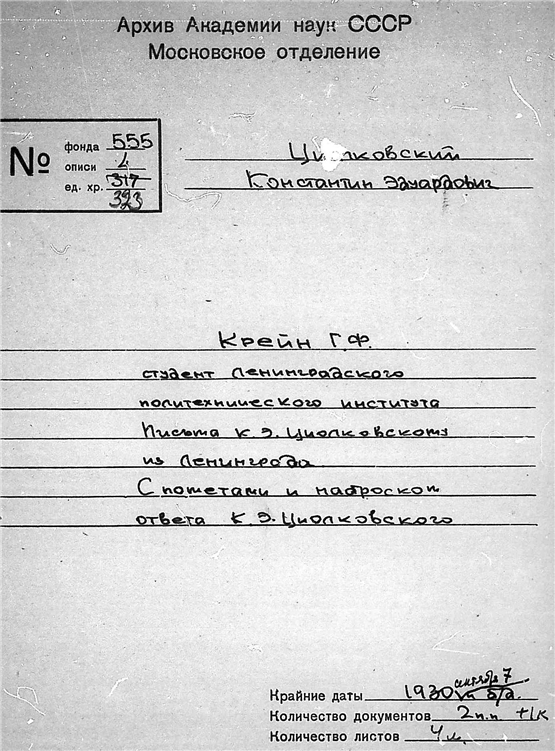 Архив Академии наук СССР
Московское отделение
№
фонда 555
описи 4
ед. хр. 317
323
Циолковский
Константин Эдуардович
Крейн Г.Ф.
студент Ленинградского
политехнического института
Письма К.Э. Циолковскому
из Ленинграда
С пометами и наброском
ответа К.Э. Циолковского
Крайние даты 1930 сентября 7 и б/д.
Количество документов 2 п.п. +1к
Количество листов 4 л